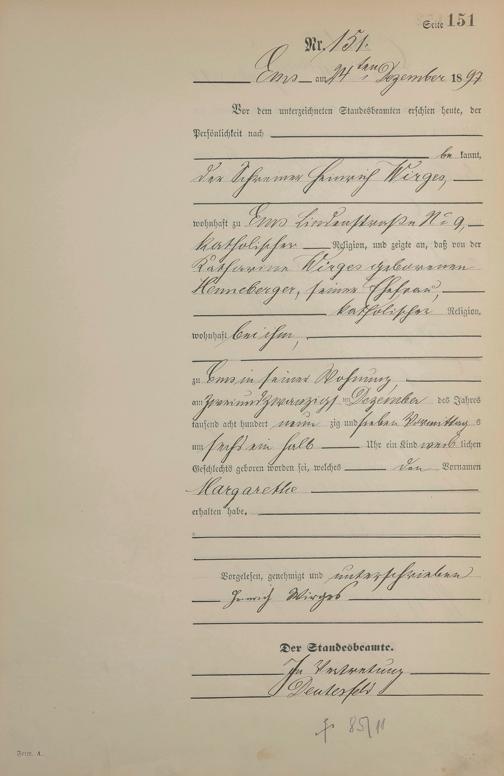 Seite 151
Nr. 151.
Ems am 24ten Dezember 1897
Vor dem unterzeichneten Standesbeamten erschien heute, der
Persönlichkeit nach
be kannt,
der Schreiner Heinrich Wirges,
wohnhaft zu Ems Lindenstraße No 9,
katholischer Religion, und zeigte an, daß von der
Katharina Wirges geborenen
Henneberger, seiner Ehefrau,
katholischer Religion,
wohnhaft bei ihm,
zu Ems in seiner Wohnung,
am zweiundzwanzigst en Dezember des Jahres
tausend acht hundert neun zig und sieben Vormittag s
um sechs ein halb Uhr ein Kind weib lichen
Geschlechts geboren worden sei, welches den Vornamen
Margarethe
erhalten habe.
Vorgelesen, genehmigt und unterschrieben
Heinrich Wirges
Der Standesbeamte.
In Vertretung
85/11
Form. A.